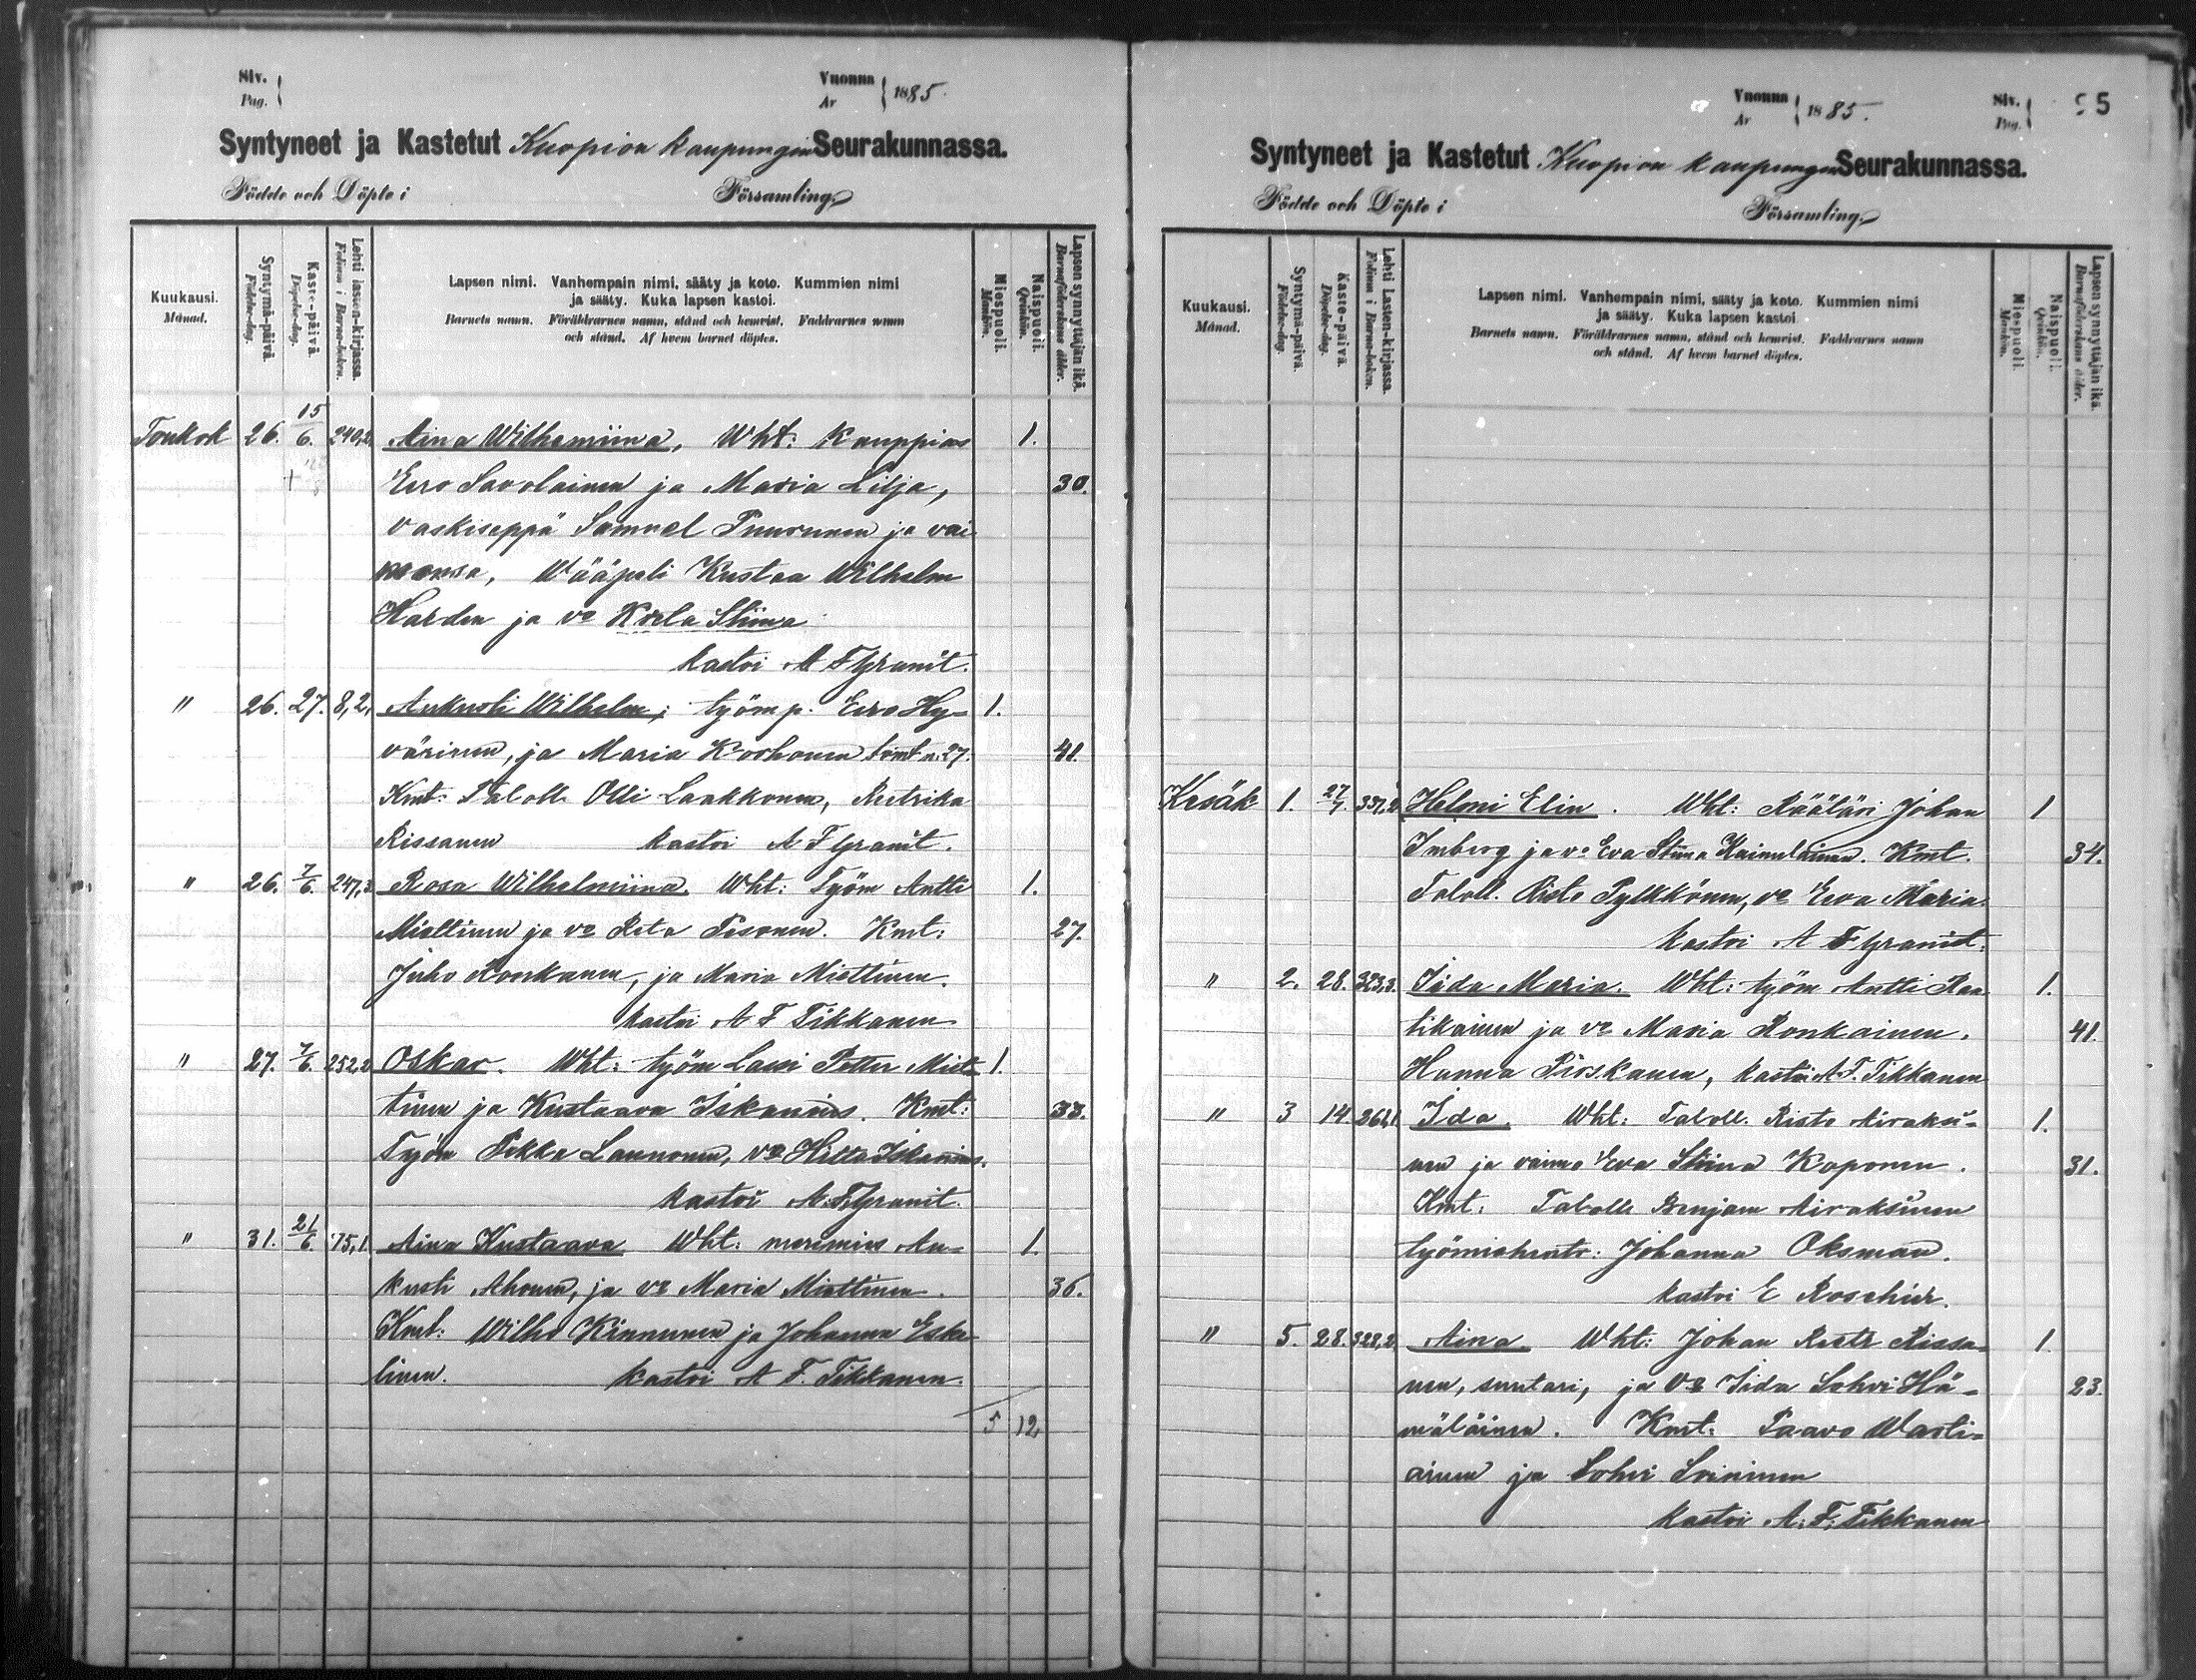 Siv.
Pag.
Vuonna
År
1885.
Syntyneet ja Kastetut Kuopion kaupungin Seurakunnassa.
Födde och Döpte i Församling.
Kuukausi.
Månad.
Syntymä-päivä.
Födelse-dag.
Kaste-päivä.
Döpelse-dag.
Lehti lasten-kirjassa.
Folium i Barna-boken.
Lapsen nimi. Vanhempain nimi, sääty ja koto. Kummien nimi
ja sääty. Kuka lapsen kastoi.
Barnets namn. Föräldrarnes namn, stånd och hemvist. Faddrarnes namn
och stånd. Af hvem barnet döptes.
Miespuoli.
Mankön.
Naispuoli.
Qvinkön.
Lapsen synnyttäjän ikä.
Barnaföderskans ålder.
Toukok 26. 15/6. 240,2 Aina Wilhemiina, Wht: Kauppias 1.
Eero Savolainen ja Maria Lilja, 30.
vaskiseppä Samuel Puurunen ja vai
monsa, Wääpeli Kustaa Wilhelm
Harden ja vo Stiina
kastoi A F Granit.
" 26. 27. 8,2, Aukusti Wilhelm; työmp. Eero Hy- 1.
värinen, ja Maria Korhonen tomt n. 27. 41.
Kmt: Taloll. Olli Laakkonen, Reetrika
Rissanen kastoi A F Granit.
" 26. 7/6. 247,3. Rosa Wilhelmiina. Wht: Työm Antti 1.
Miettinen ja vo Reta Pesonen. Kmt: 27.
Juho Ronkanen, ja Maria Miettinen.
kastoi A F Tikkanen
" 27. 7/6. 252,2 Oskar. Wht: työm Lassi Petter Miet- 1.
tinen ja Kustaava Iskanius. Kmt: 33.
Työm Pekka Launonen, vo Hetta Iskanius.
kastoi A. F. Granit.
" 31. 21/6. 75,1. Aina Kustaava Wht: merimies Au- 1.
kusti Ahonen, ja vo Maria Miettinen. 36.
Kmt: Wilho Kinnunen ja Johanna Eske
linen. kastoi A F. Tikkanen.
5 12
Vuonna
År
1885.
Siv.
Pag.
95
Syntyneet ja Kastetut Kuopion kaupungin Seurakunnassa.
Födde och Döpte i Församling.
Kuukausi.
Månad.
Syntymä-päivä.
Födelse-dag.
Kaste-päivä.
Döpelse-dag.
Lehti Lasten-kirjassa.
Folium i Barna-boken.
Lapsen nimi. Vanhempain nimi, sääty ja koto. Kummien nimi
ja sääty. Kuka lapsen kastoi.
Barnets namn. Föräldrarnes namn, stånd och hemvist. Faddrarnes namn
och stånd. Af hvem barnet döptes.
Miespuoli.
Mankön.
Naispuoli.
Qvinkön.
Lapsen synnyttäjän ikä.
Barnaföderskans ålder.
Kesäk 1. 27/7. 351,2 Helmi Elin. Wht: Räätäri Johan 1
Imberg ja vo Eva Stiina Kainulainen. Kmt. 34.
Taloll. Risto Pylkkönen, vo Eeva Maria
kastoi A F Granit.
" 2. 28. 323,3. Iida Maria. Wht: työm Antti Rau 1.
tikainen ja vo Maria Ronkainen. 41.
Hanna Pirskanen, kastoi A. F. Tikkanen
" 3 14. 261,1 Ida. Wht: Taloll. Risto Airaksi- 1.
nen ja vaimo Eva Stiina Koponen. 31.
Kmt: Taloll Benjam Airaksinen
Johanna Oksman.
kastoi E Roschier.
" 5. 28. 328,2 Aina. Wht: Johan Rissa- 1.
nen, suutari, ja vo Iida Sohvi Hä- 23.
mäläinen. Kmt: Paavo Warti-
ainen ja Sohvi Soininen
kastoi A. F. Tikkanen